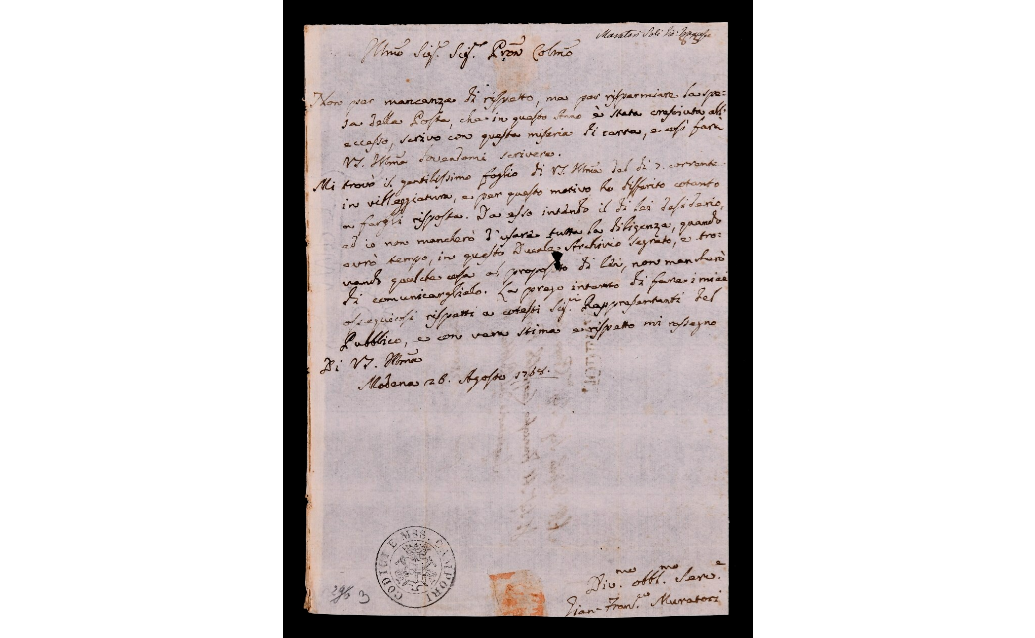 Muratori Soli Gio: Francesco
Illmo Sigr. Sigr. Pron Colmo
Non per mancanza di rispetto, ma per risparmiare la spe-
sa della Posta, che in questo Anno è stata cresciuta all'
eccesso, scrivo con questa miseria di carta, e così farà
VS. Illma dovendomi scrivere.
Mi trovò il gentilissimo foglio di VS. Illma del dì 7. corrente
in villeggiatura, e per questo motivo ho differito cotanto
a fargli risposta. Da esso intendo il di lei desiderio,
ed io non mancherò d'usare tutta la diligenza, quando
avrò tempo, in questo Ducale Archivio segreto, e tro-
vando qualche cosa al proposito di lei, non mancherò
di comunicarglielo. La prego intanto di fare i miei
ossequiosi rispetti a cotesti Sigri Rappresentanti del
Pubblico, e con vera stima e rispetto mi rassegno
Di VS. Illma
Modena 28. Agosto 1768.
CODICI E MSS. CAMPORI
Divmo obblmo Serve
Gian-Franco Muratori